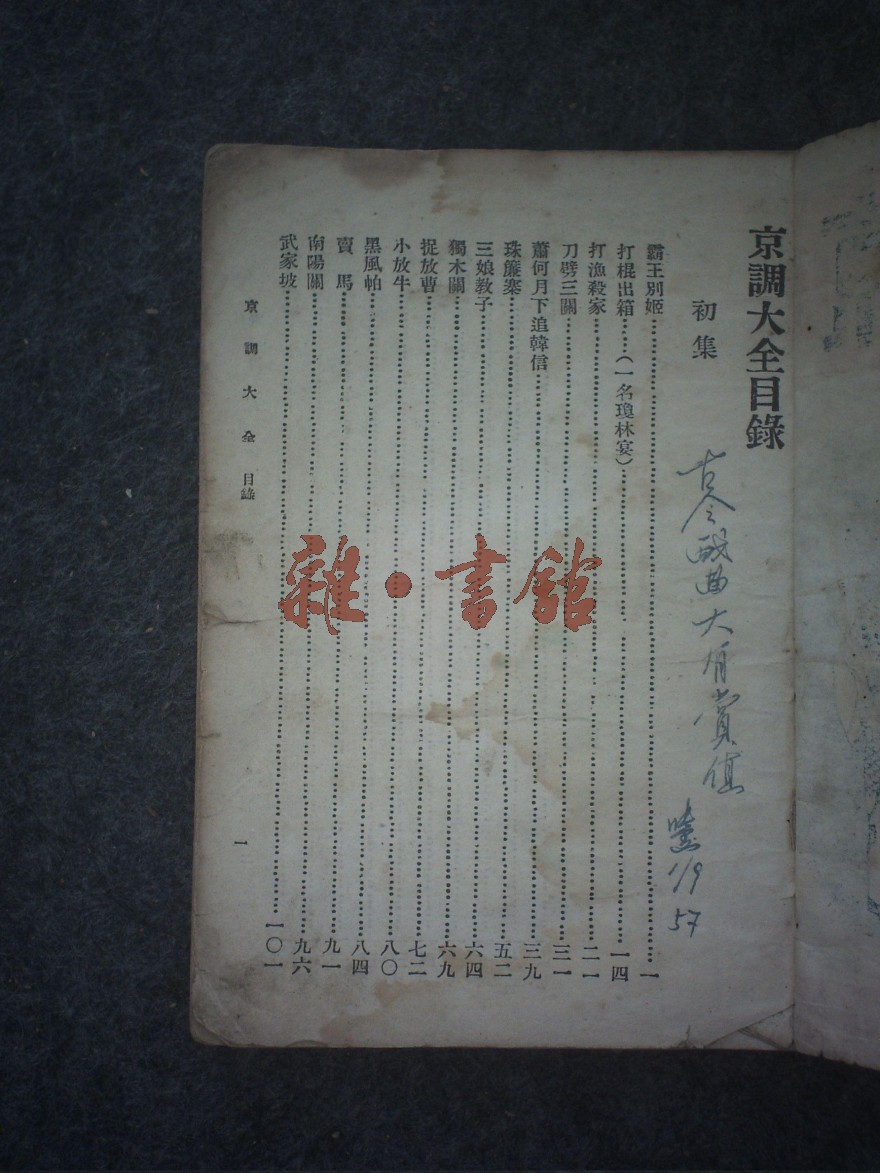 京調大全目錄
初集
古今戲曲大有賞值
1/9
57
霸王別姬……一
打棍出箱……(一名瓊林宴)……一四
打漁殺家……二一
刀劈三關……三一
蕭何月下追韓信……三九
珠簾寨……五二
三娘教子……六四
獨木關……六九
捉放曹……七二
小放牛……八〇
黑風帕……八四
賣馬……九一
南陽關……九六
武家坡……一〇一
京調大全 目錄
一
雜·書館